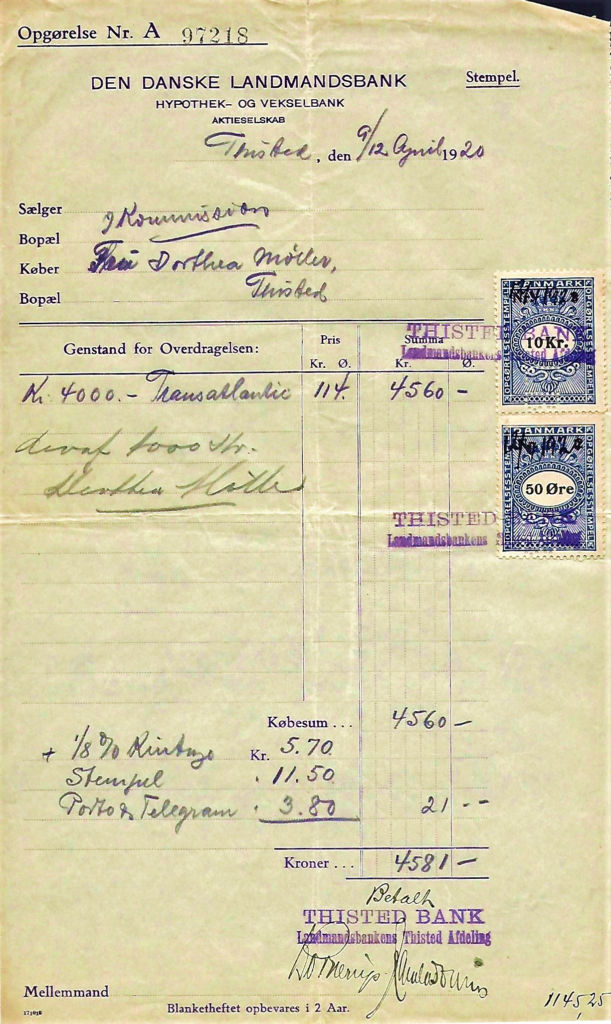 Opgørelse Nr. A 97218
DEN DANSKE LANDMANDSBANK
Stempel.
HYPOTHEK- OG VEKSELBANK
AKTIESELSKAB
Thisted, den 9/12 April 1920
Sælger i Kommission
Bopæl
Køber Frú Dorthea Møller,
Bopæl Thisted
DANMARK
OPGØRELSESSTEMPEL
10 Kr.
Genstand for Overdragelsen: Pris Summa
Kr. Ø. Kr. Ø.
THISTED BANK
Landmandsbankens Thisted Afdeling
Kr. 4000.- Transatlantic 114. 4560 -
DANMARK
OPGØRELSESSTEMPEL
50 Øre
deraf 1000 Kr.
Dorthea Møller
THISTED
Landmandsbankens
Købesum ... 4560 -
+ 1/8 % Kurtage Kr. 5.70
Stempel . 11.50
Porto & Telegram . 3.80 21 - -
Kroner ... 4581 -
Betalt
THISTED BANK
Landmandsbankens Thisted Afdeling
Mellemmand
Blanketheftet opbevares i 2 Aar.
114525